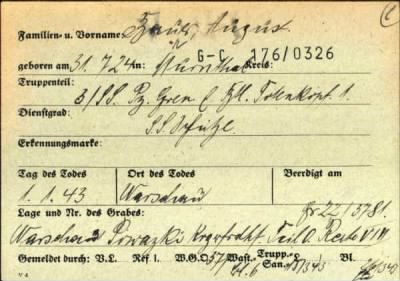 Familien- u. Vorname: Bauer, August
geboren am 31. 7. 24 in: Kreis: G-C 176/0326
Truppenteil:
3/SS. Pz. Gren. E. Btl. Totenkopf. 1.
Dienstgrad:
S.S. Schütze
Erkennungsmarke:
Tag des Todes Ort des Todes Beerdigt am
1. 1. 43 Warschau
Lage und Nr. des Grabes: Gr. 22/3781.
Warschau Powazki Reihe VIII
Gemeldet durch: V.L. Ref 1. W.G.O. Wast.- Trupp.- San. Bl.
V 4